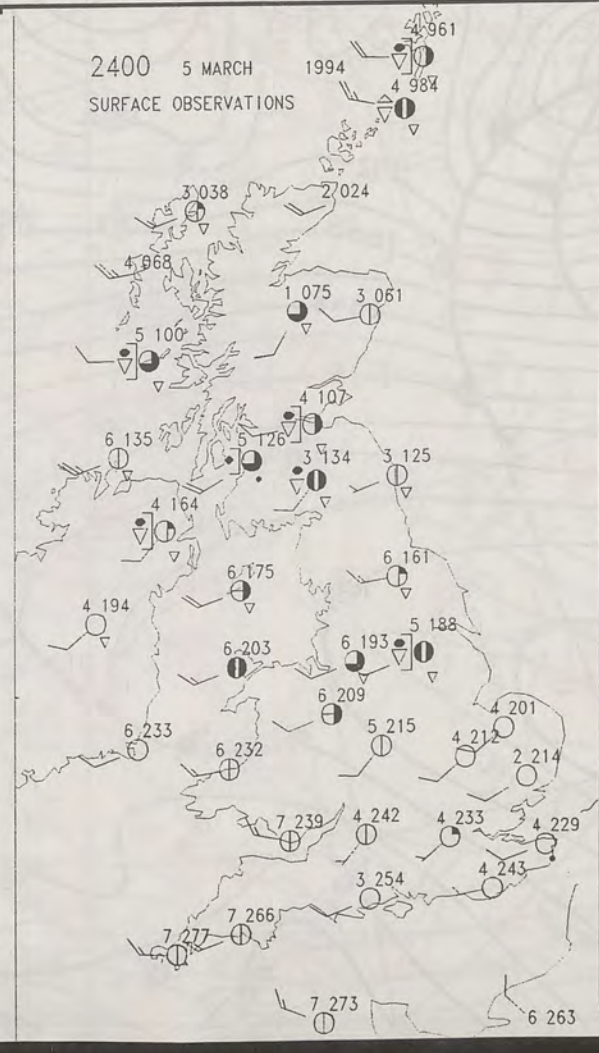 4 961
2400 5 MARCH 1994
4 984
SURFACE OBSERVATIONS
3 038
2 024
4 068
1 075
3 061
5 100
4 107
6 135
5 126
3 134
3 125
4 164
6 175
6 161
4 194
5 188
6 203
6 193
6 209
4 201
6 233
5 215
4 212
6 232
2 214
7 239
4 242
4 233
4 229
3 254
4 243
7 266
7 277
7 273
6 263